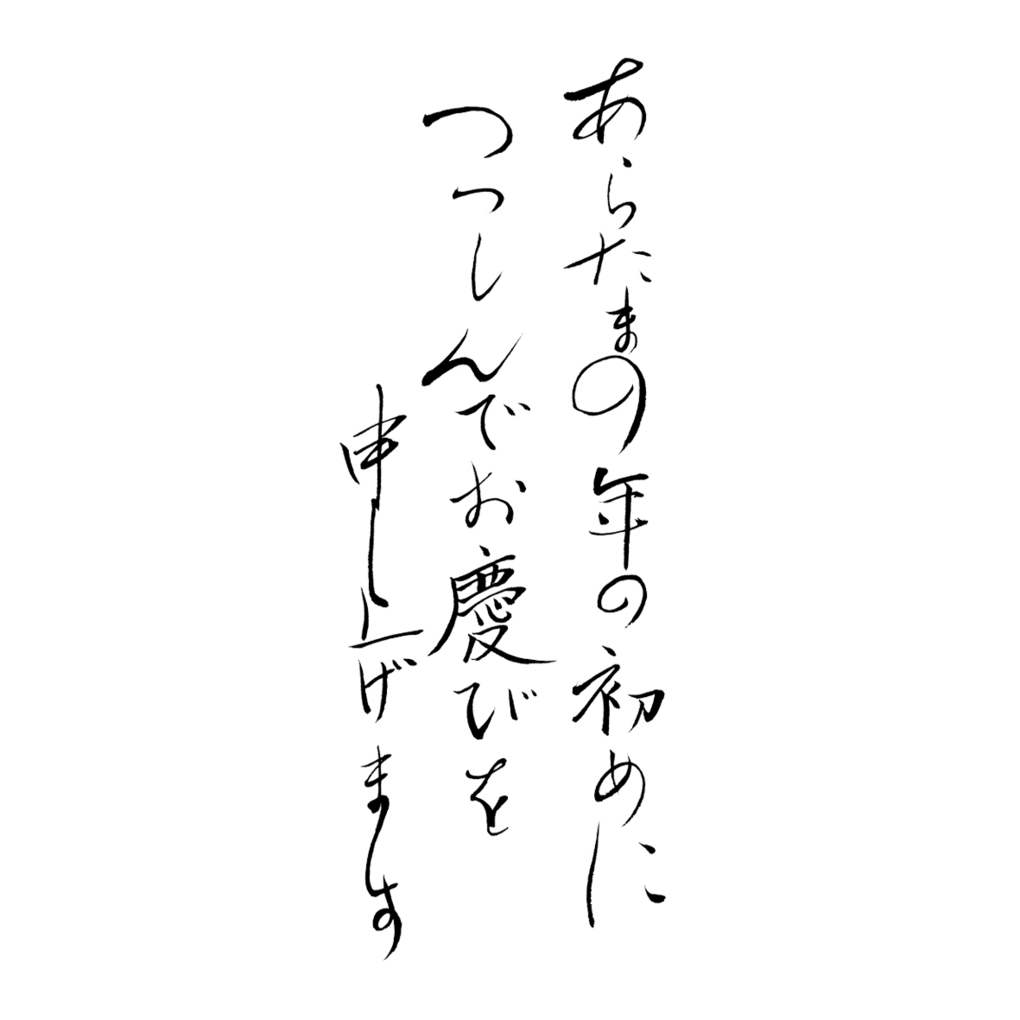 あらたまの年の初めに
つつしんでお慶びを
申し上げます